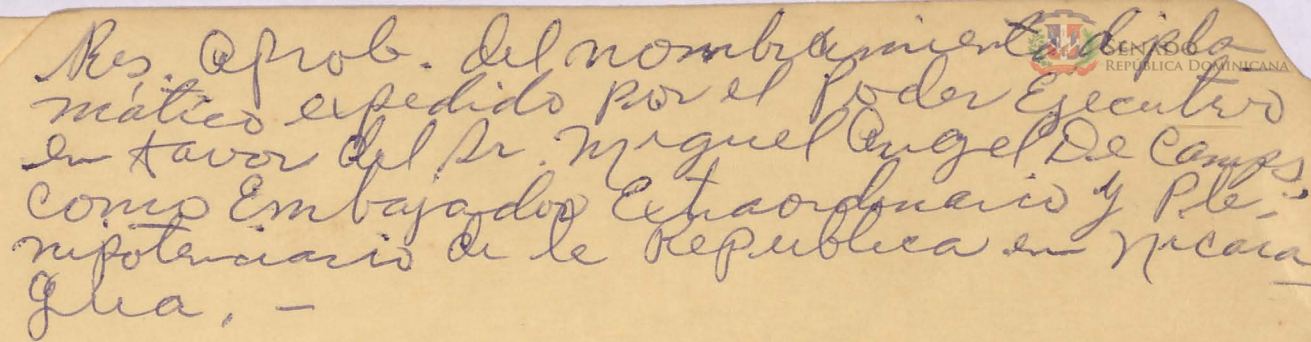 Res. Aprob. del nombramiento diplo
mático expedido por el Poder Ejecutivo
en favor del Sr. Miguel Angel De Camps,
como Embajador Extraordinario y Ple-
nipotenciario de la República en Nicara
gua. -
SENADO
REPÚBLICA DOMINICANA